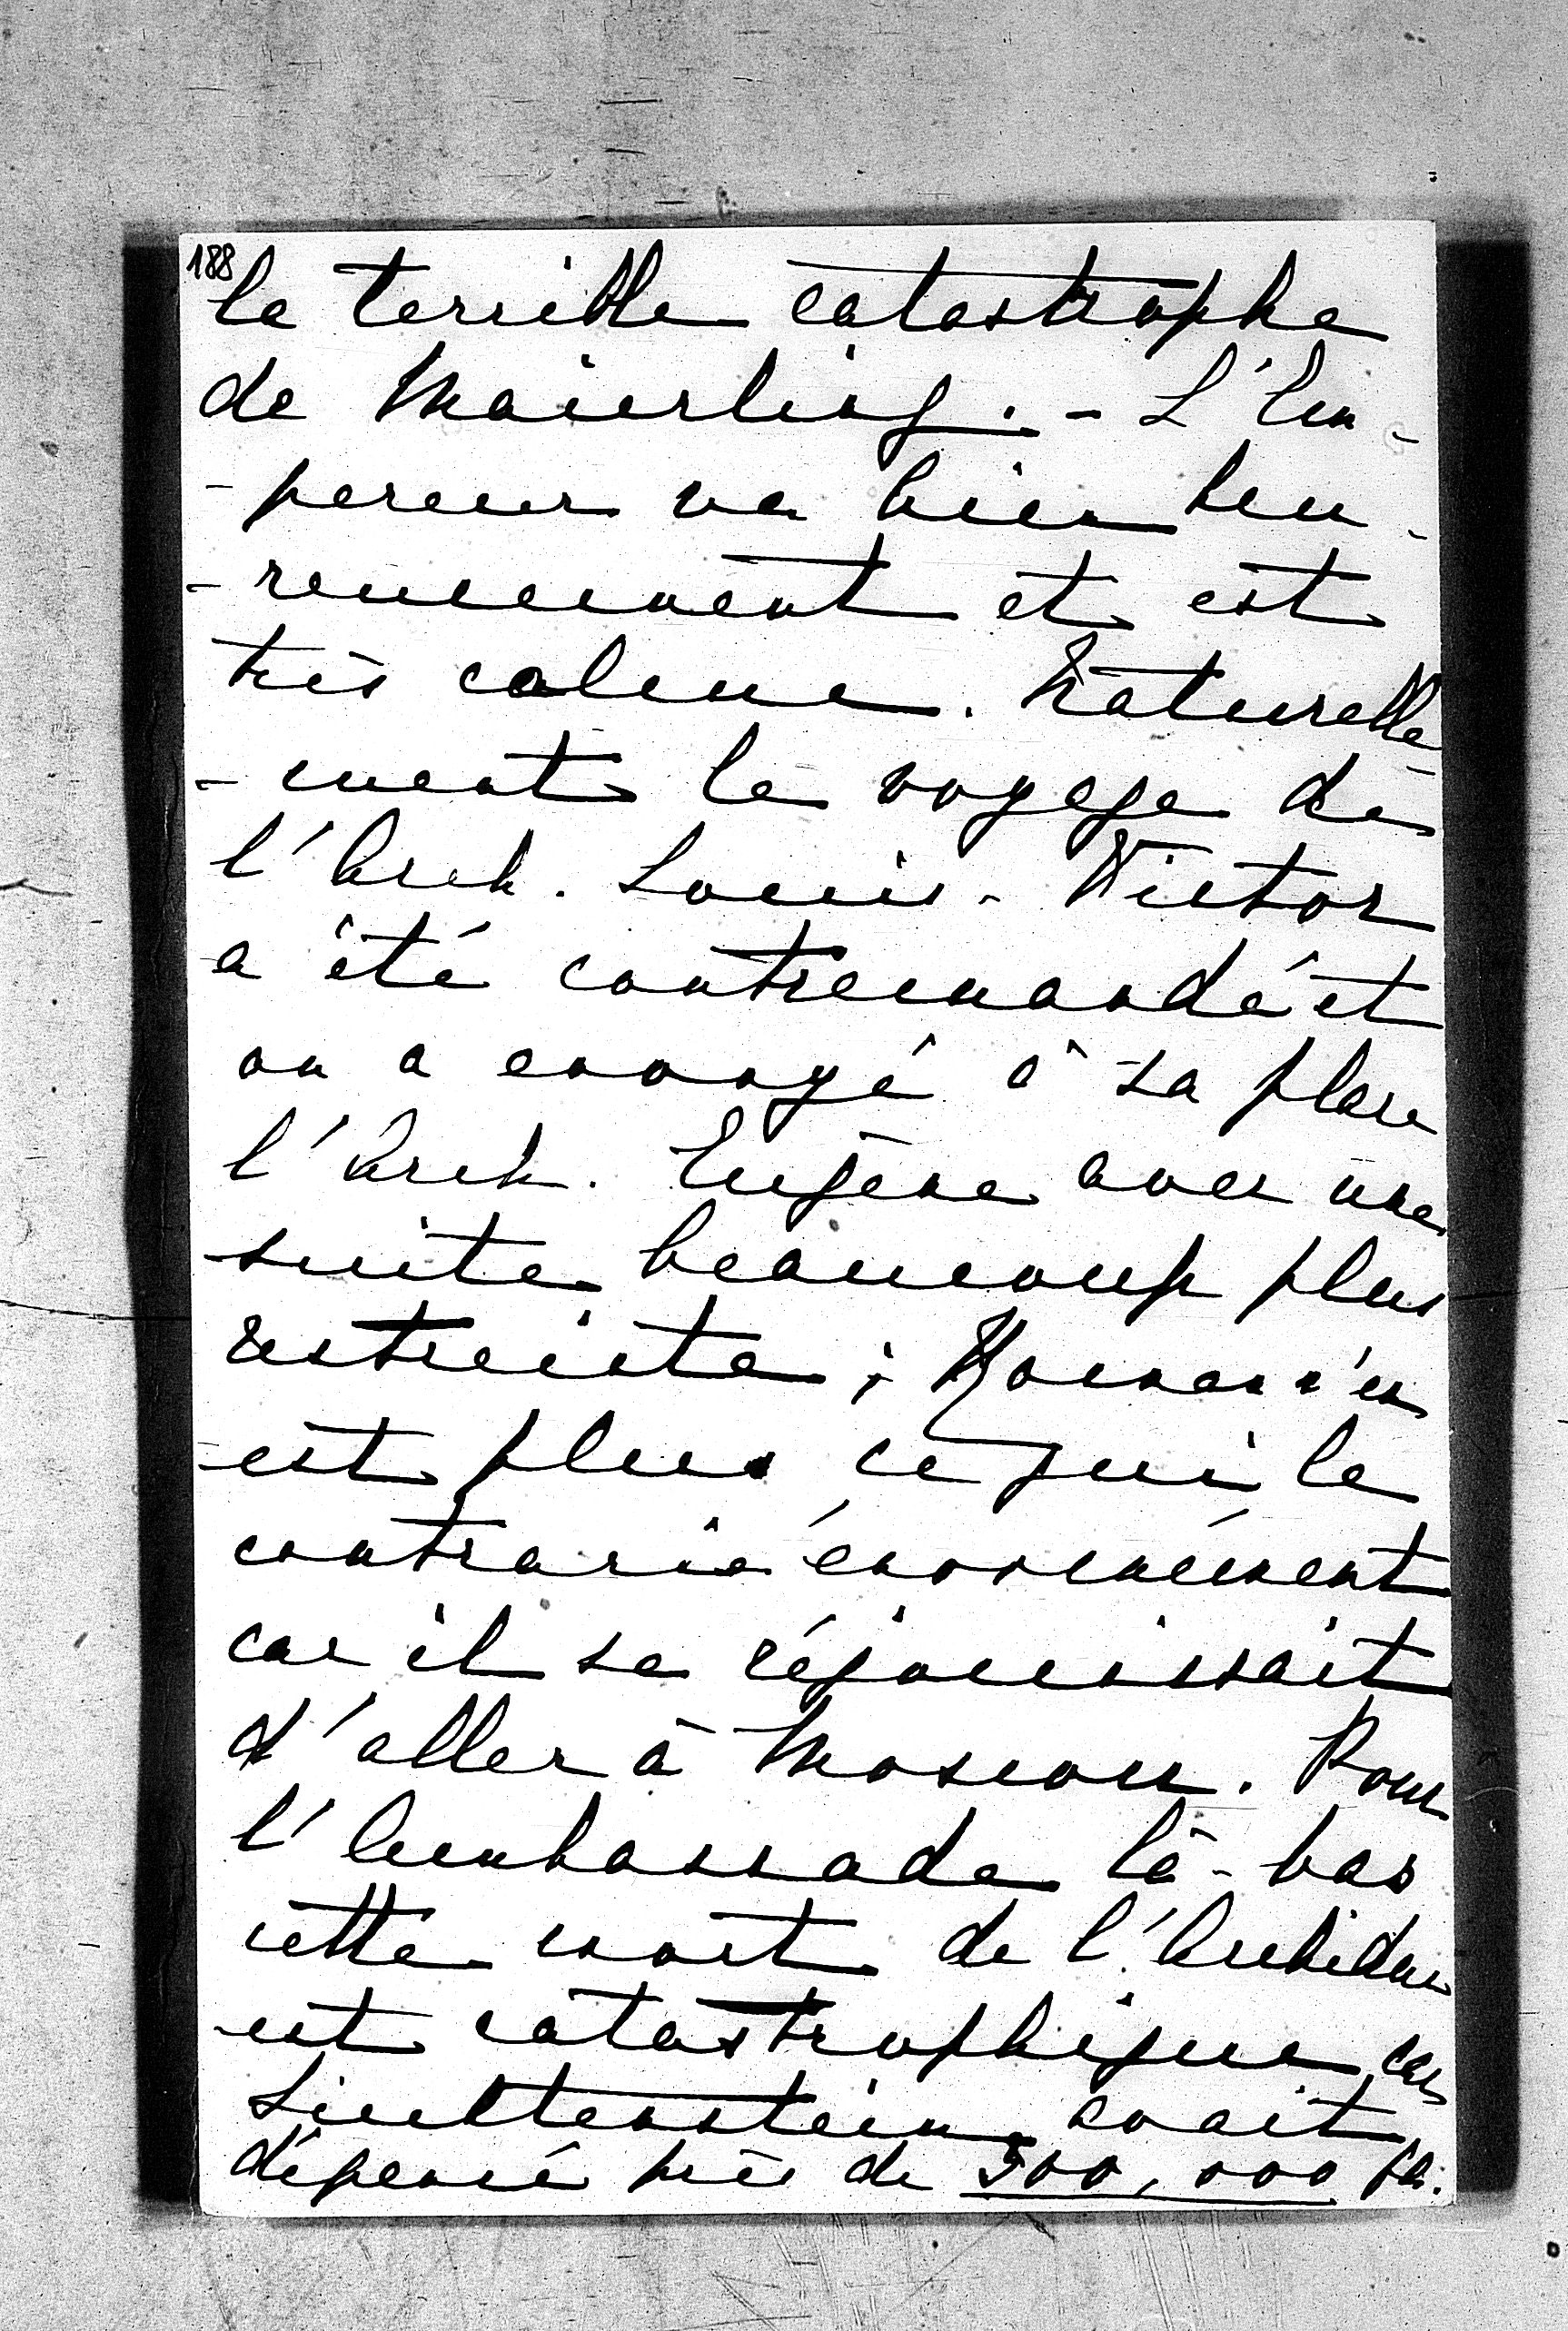 188
la terrible catastrophe
de Maierling. - L'Em-
-pereur va bien heu-
-reusement et est
très calme. Naturelle
-ment le voyage de
l'Arch. Louis-Victor
a été contremandé et
on a envoyé à sa place
l'Arch. Eugène avec une
suite beaucoup plus
restreinte ; n'en
est plus ce qui le
contrarie énormément
car il se réjouissait
d'aller à Moscou. Pour
l'Ambassade là-bas
cette mort de l'Archiduc
est catastrophique car
Liechtenstein avait
dépensé près de 500,000 fl.